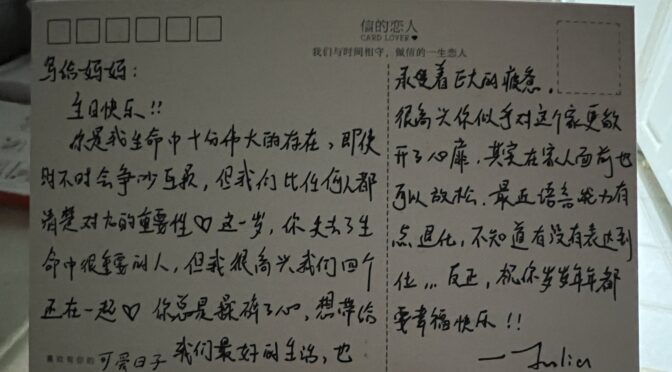 信的恋人
CARD LOVER♥
我们与时间相守,做信的一生恋人
写给妈妈:
生日快乐!!
你是我生命中十分伟大的存在,即使
时不时会争吵互怼,但我们比任何人都
清楚对方的重要性♡这一岁,你失去了生
命中很重要的人,但我很高兴我们四个
还在一起♡你总是操碎了心,想带给
我们最好的生活,也
喜欢有你的可爱日子
承受着巨大的疲惫.
很高兴你似乎对这个家更敞
开了心扉,其实在家人面前也
可以放松.最近语言能力有
点退化,不知道有没有表达到
位...反正,祝你岁岁年年都
要幸福快乐!!
—Julia